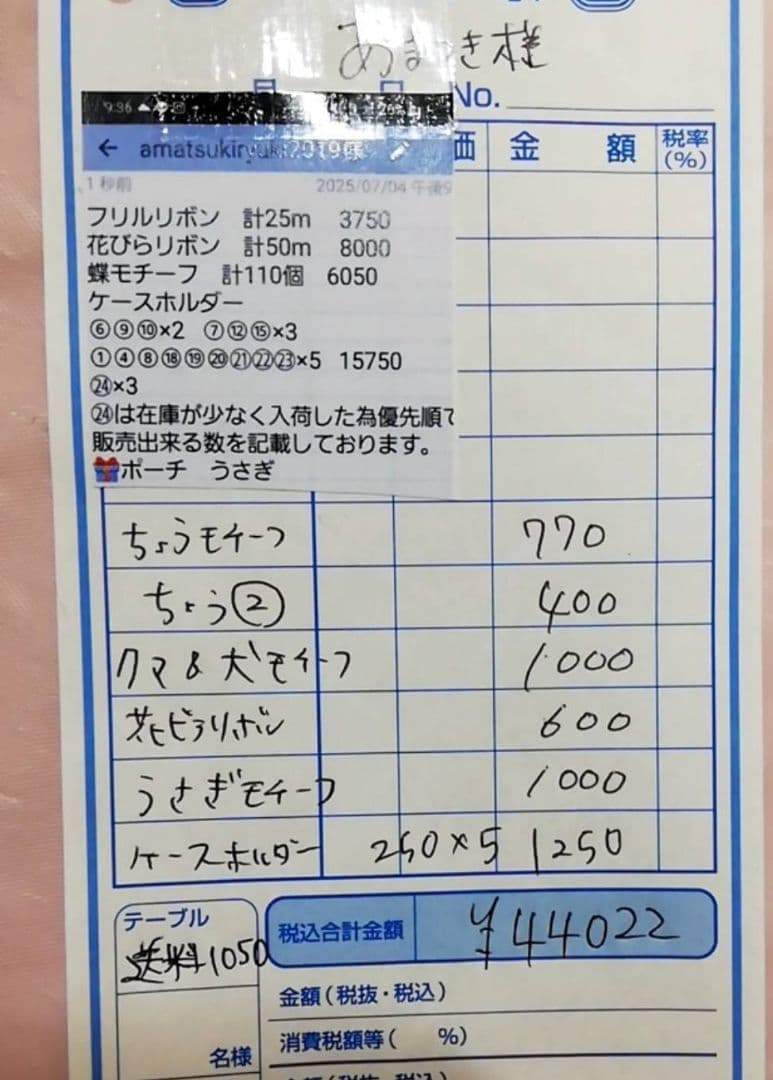 あまつき様
月 日
No.
価 金 額 税率(%)
9:36
← amatsukiryuki2019様
1 秒前 2025/07/04 午後9
フリルリボン 計25m 3750
花びらリボン 計50m 8000
蝶モチーフ 計110個 6050
ケースホルダー
⑥⑨⑩×2 ⑦⑫⑮×3
①④⑧⑱⑲⑳㉑㉒㉓×5 15750
㉔×3
㉔は在庫が少なく入荷した為優先順で
販売出来る数を記載しております。
🎁ポーチ うさぎ
ちょうモチーフ 770
ちょう② 400
クマ&犬モチーフ 1000
花ビラリボン 600
うさぎモチーフ 1000
ケースホルダー 250×5 1250
テーブル
送料1050
名様
税込合計金額 ¥44022
金額(税抜・税込)
消費税額等( %)